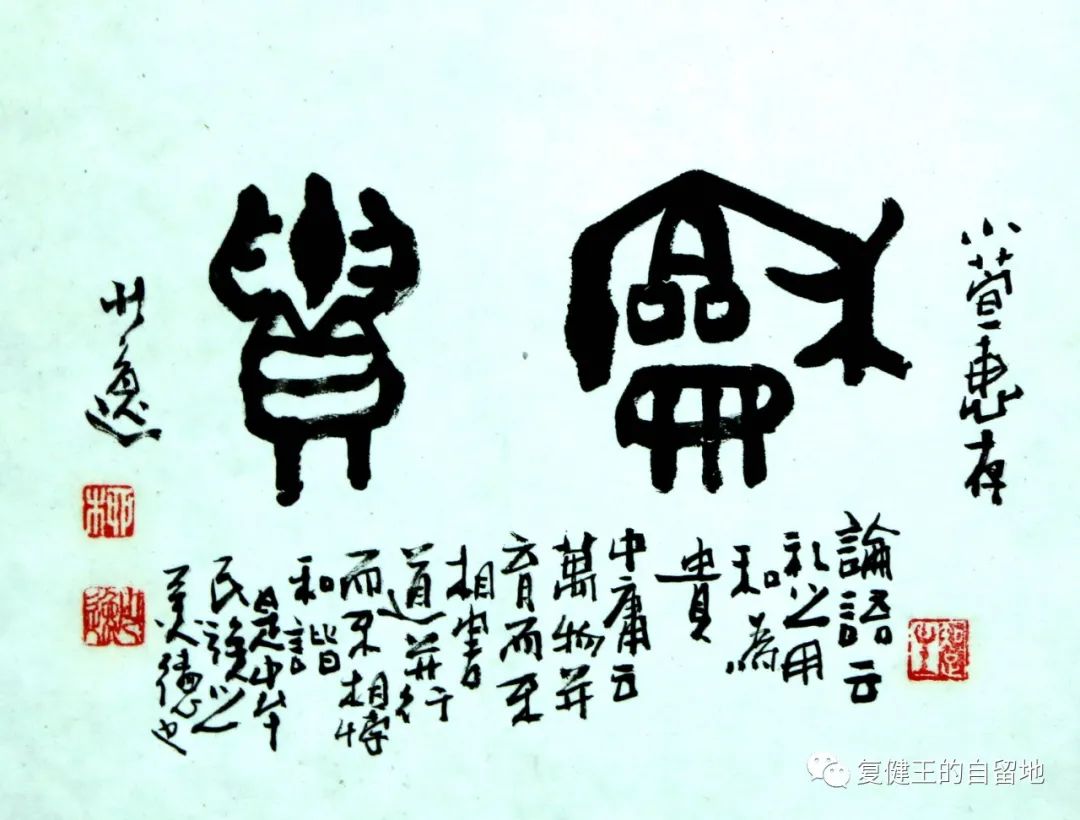 小萱惠存
龢貴
論語云
礼之用
和為
貴
中庸云
萬物并
育而不
相害
道并行
而不相悖
和諧
是中华
民族之
美德也
少逸
柳
复健王的自留地